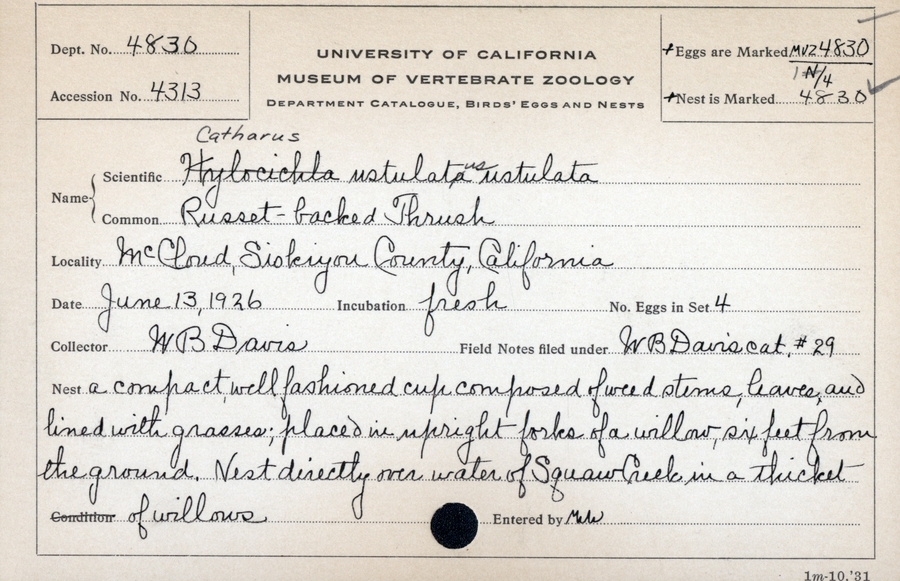 Dept. No. 4830
Accession No. 4313
UNIVERSITY OF CALIFORNIA
MUSEUM OF VERTEBRATE ZOOLOGY
DEPARTMENT CATALOGUE, BIRDS' EGGS AND NESTS
+Eggs are Marked MVZ4830
1 N/4
+Nest is Marked 4830
Catharus
Name Scientific Hylocichla ustulata us ustulata
Common Russet-backed Thrush
Locality McCloud, Siskiyou County, California
Date June 13, 1926 Incubation fresh No. Eggs in Set 4
Collector W B Davis Field Notes filed under W B Davis cat. #29
Nest a compact, well fashioned cup composed of weed stems, leaves, and
lined with grasses; placed in upright forks of a willow, six feet from
the ground. Nest directly over water of Squaw Creek in a thicket
Condition of willows Entered by
1m-10,'31